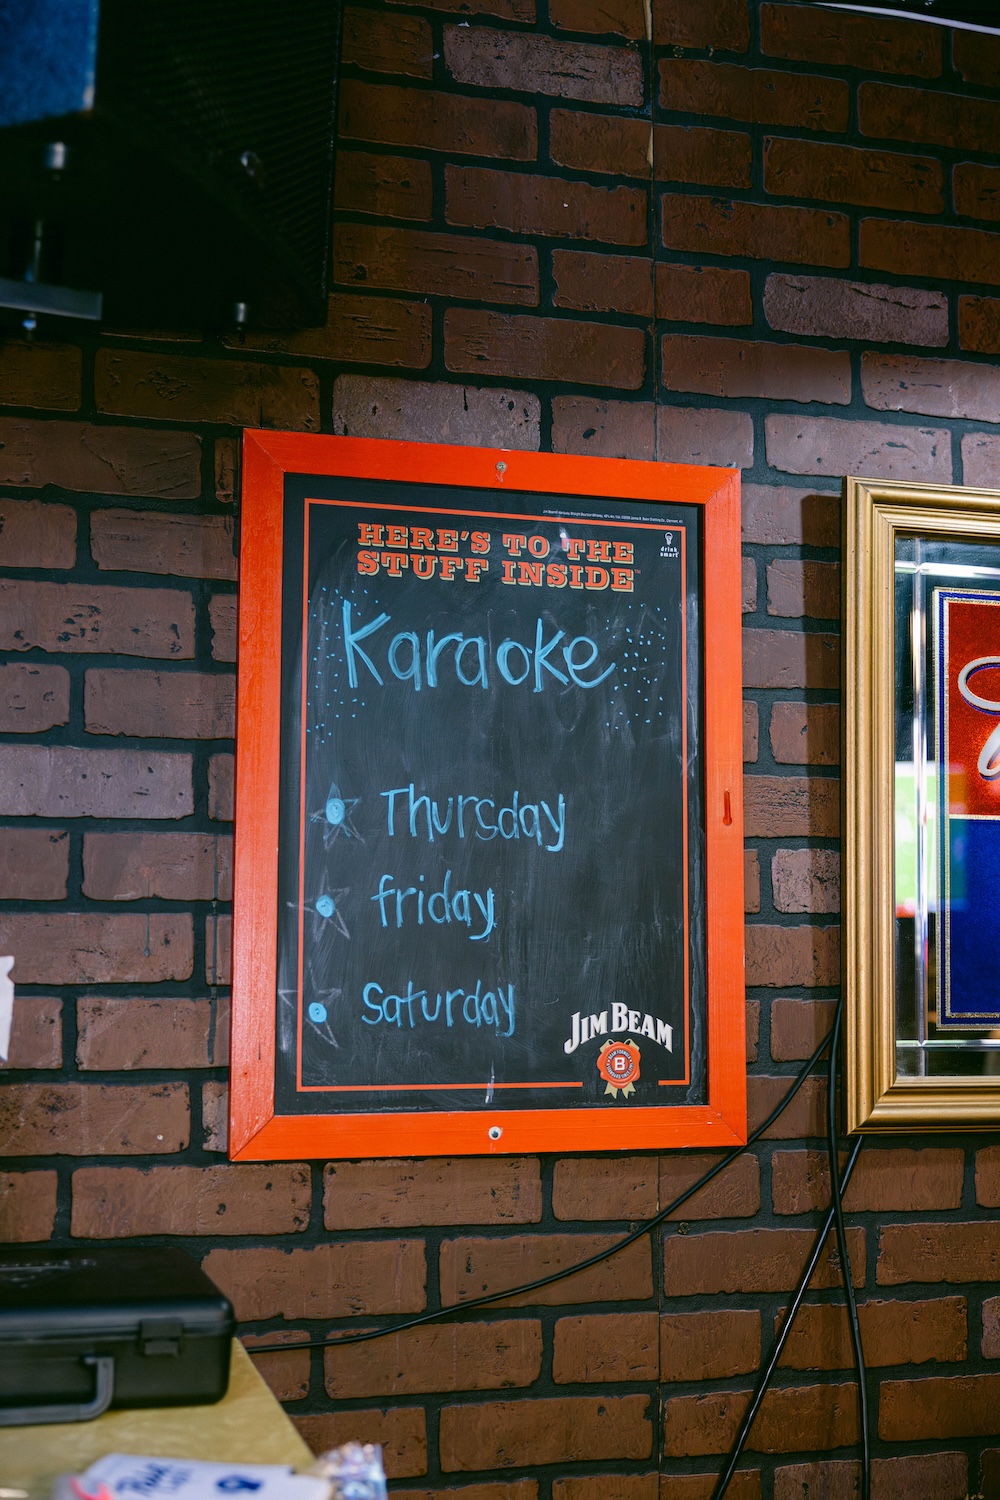 HERE'S TO THE
STUFF INSIDE™
drink
smart
Karaoke
Thursday
friday
Saturday
JIM BEAM
B